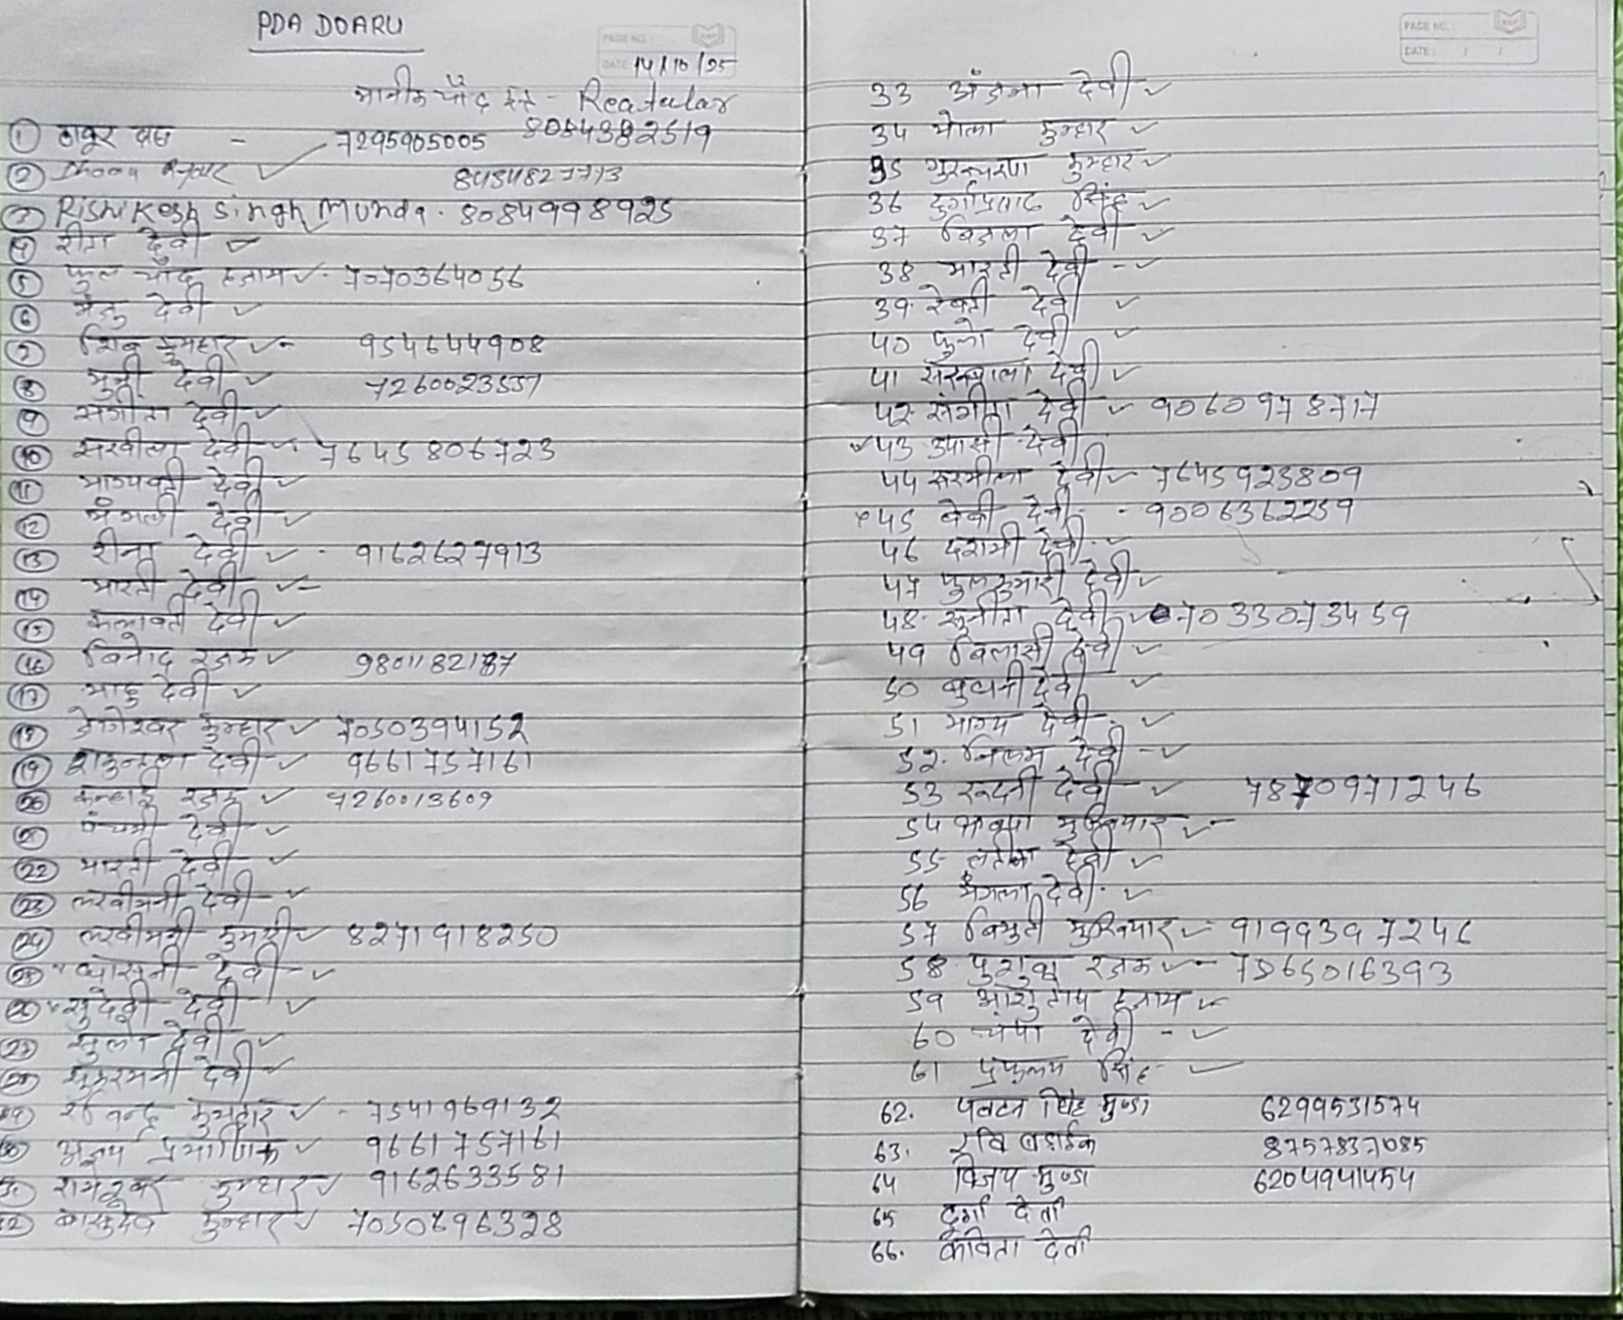 PDA DOARU
PAGE NO.:
DATE: 14/10/25
- Reatular
8084382519
① ठाकुर दास - 7295905005
② ✓ 8454827773
③ Rishi Kesh Singh Munda. 8084998925
④ रीता देवी ✓
⑤ फुल चाँद हजाम ✓ - 7070364056
⑥ मंजु देवी ✓
⑦ शिबू कुमहार ✓ - 954644908
⑧ मुन्नी देवी ✓ 7260023537
⑨ संगीता देवी ✓
⑩ सरवीला देवी ✓ 7645806723
⑪ भाग्यवती देवी ✓
⑫ मंगली देवी ✓
⑬ रीना देवी ✓ - 9162627913
⑭ भारती देवी ✓
⑮ कलावती देवी ✓
⑯ बिनोद रजक ✓ 9801182187
⑰ भादु देवी ✓
⑱ जोगेश्वर कुम्हार ✓ 7050394152
⑲ शकुन्तला देवी ✓ 9661757161
⑳ कन्हाई रजक ✓ 7260013609
㉑ पंचमी देवी ✓
㉒ भारती देवी ✓
㉓ लखीमनी देवी ✓
㉔ लखीमनी कुमारी ✓ 8271918250
㉕ देवी ✓
㉖ सुदेवी देवी ✓
㉗ फुलो देवी ✓
㉘ सुकरमनी देवी ✓
㉙ रविन्द्र कुमहार ✓ - 7541969132
㉚ अजय प्रमाणिक ✓ 9661757161
㉛ कुम्हार ✓ 9162633581
㉜ बासुदेव कुम्हार ✓ 7050696328
PAGE NO.:
DATE: / /
33 अंजना देवी ✓
34 भोला कुम्हार ✓
35 गुरुचरण कुम्हार ✓
36 दुर्गाप्रसाद सिंह ✓
37 बिजला देवी ✓
38 भारती देवी - ✓
39. रेवती देवी ✓
40 फुलो देवी ✓
41 देवी ✓
42 संगीता देवी ✓ 9060978717
✓43 उपासी देवी
44 सरमीला देवी ✓ 7645923809
45 बेबी देवी - 9006362259
46 दशमी देवी ✓
47 फुलकुमारी देवी ✓
48. सुनीता देवी ✓ 7033073459
49 बिलासी देवी ✓
50 बुधनी देवी ✓
51 भाग्य देवी ✓
52. निलम देवी - ✓
53 रूदनी देवी ✓ 7870971246
54 मुखियार ✓
55 ललिता देवी ✓
56 मंगला देवी. ✓
57 बिभुती मुखियार ✓ - 9199397246
58 रजक ✓ - 7965016393
59 आशुतोष हजाम ✓
60 चंपा देवी - ✓
61 प्रफुलय सिंह - ✓
62. पवटन सिंह मुण्डा 6299531574
63. रवि बडाईक 8757837085
64 विजय मुण्डा 6204941454
65 दुर्गा देवी
66. कविता देवी